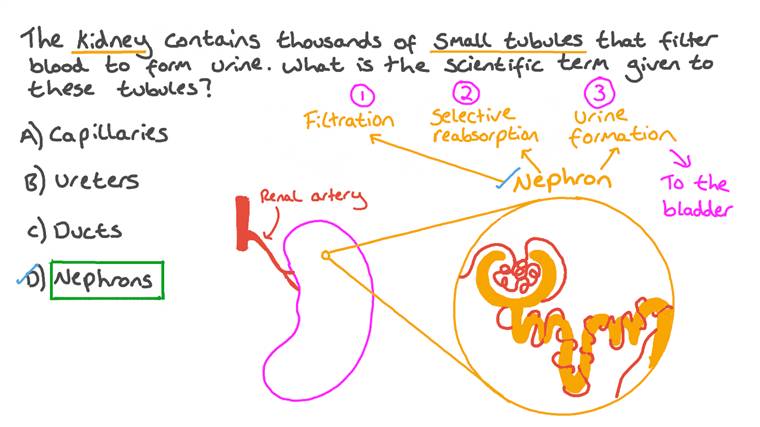 The kidney contains thousands of small tubules that filter
blood to form urine. What is the scientific term given to
these tubules?
1 2 3
Filtration Selective Urine
reabsorption formation
A) Capillaries
Nephron To the
bladder
B) Ureters
Renal artery
C) Ducts
D) Nephrons